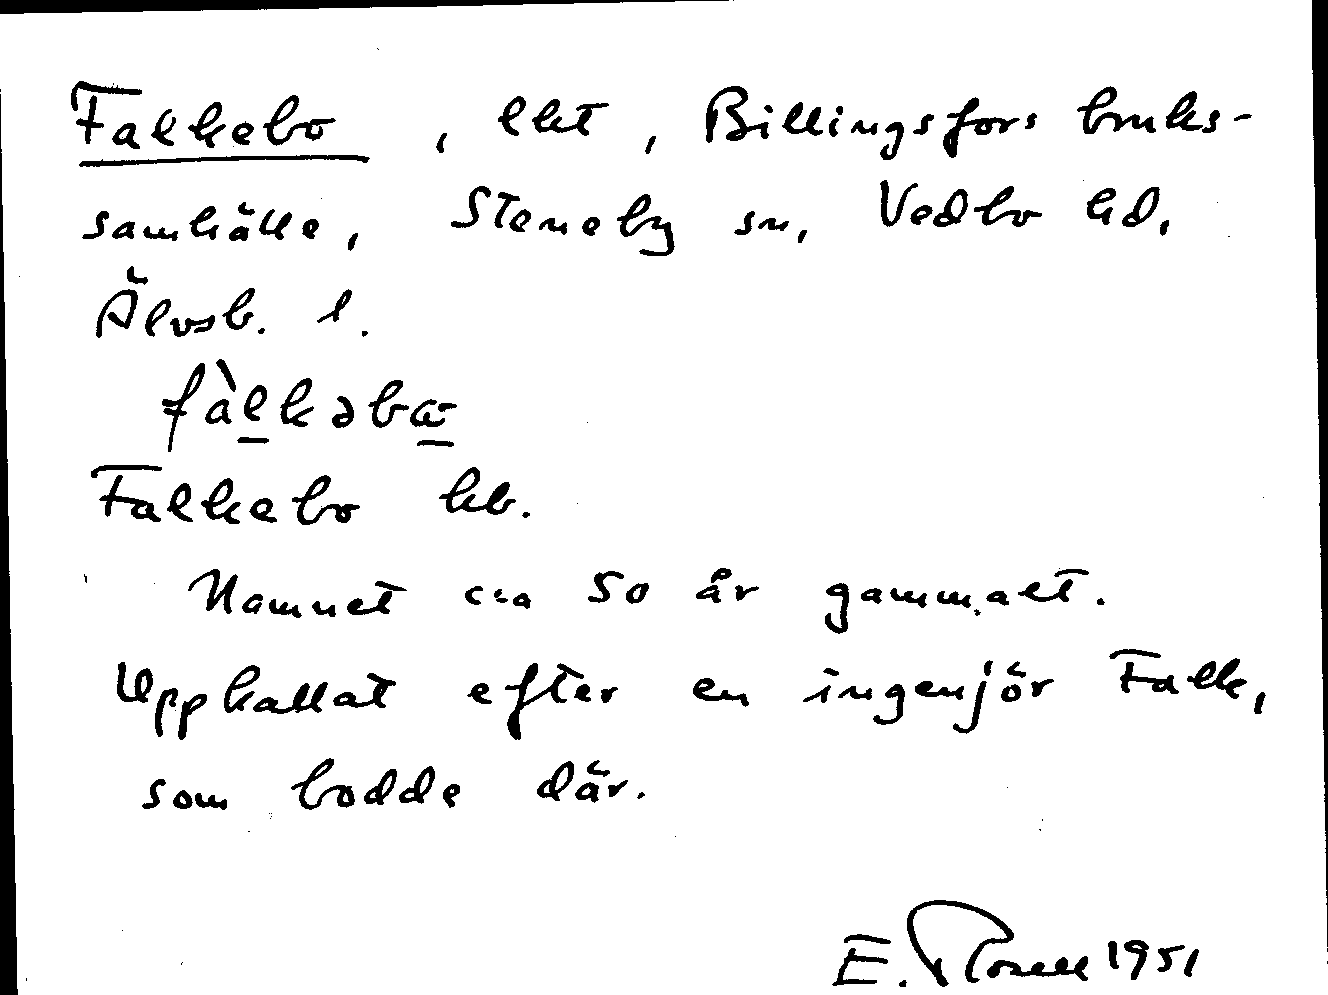 Falkebo, lht, Billingsfors bruks-
samhälle, Steneby sn, Vedbo hd,
Älvsb. l.
fàlkəbω
Falkebo kb.
Namnet c:a 50 år gammalt.
Uppkallat efter en ingenjör Falk,
som bodde där.
E. Rosell 1951